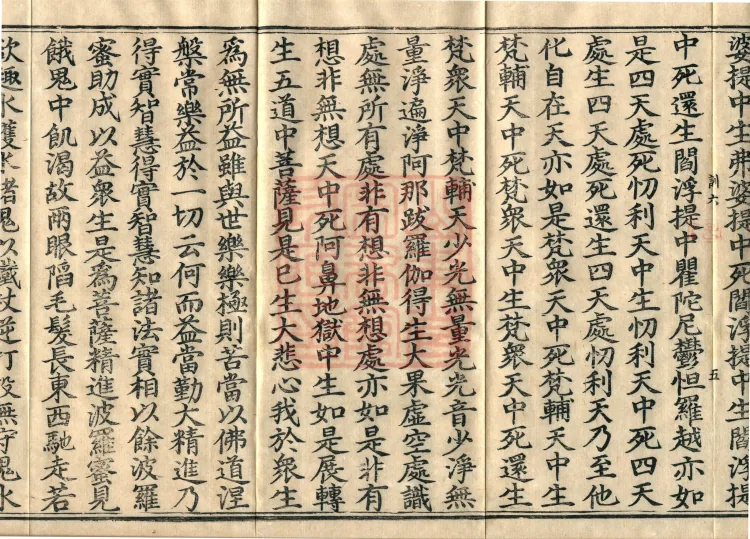 婆提中生弗婆提中死閻浮提中生閻浮提
訓六 五
中死還生閻浮提中瞿陀尼鬱怛羅越亦如
是四天處死忉利天中生忉利天中死四天
處生四天處死還生四天處忉利天乃至他
化自在天亦如是梵衆天中死梵輔天中生
梵輔天中死梵衆天中生梵衆天中死還生
梵衆天中梵輔天少光無量光光音少淨無
量淨遍淨阿那跋羅伽得生大果虛空處識
處無所有處非有想非無想處亦如是非有
想非無想天中死阿鼻地獄中生如是展轉
生五道中菩薩見是已生大悲心我於衆生
爲無所益雖與世樂樂極則苦當以佛道涅
槃常樂益於一切云何而益當勤大精進乃
得實智慧得實智慧知諸法實相以餘波羅
蜜助成以益衆生是爲菩薩精進波羅蜜見
餓鬼中飢渴故兩眼陷毛髮長東西馳走若
欲趣水護水諸鬼以鐵杖逆打設無守鬼水